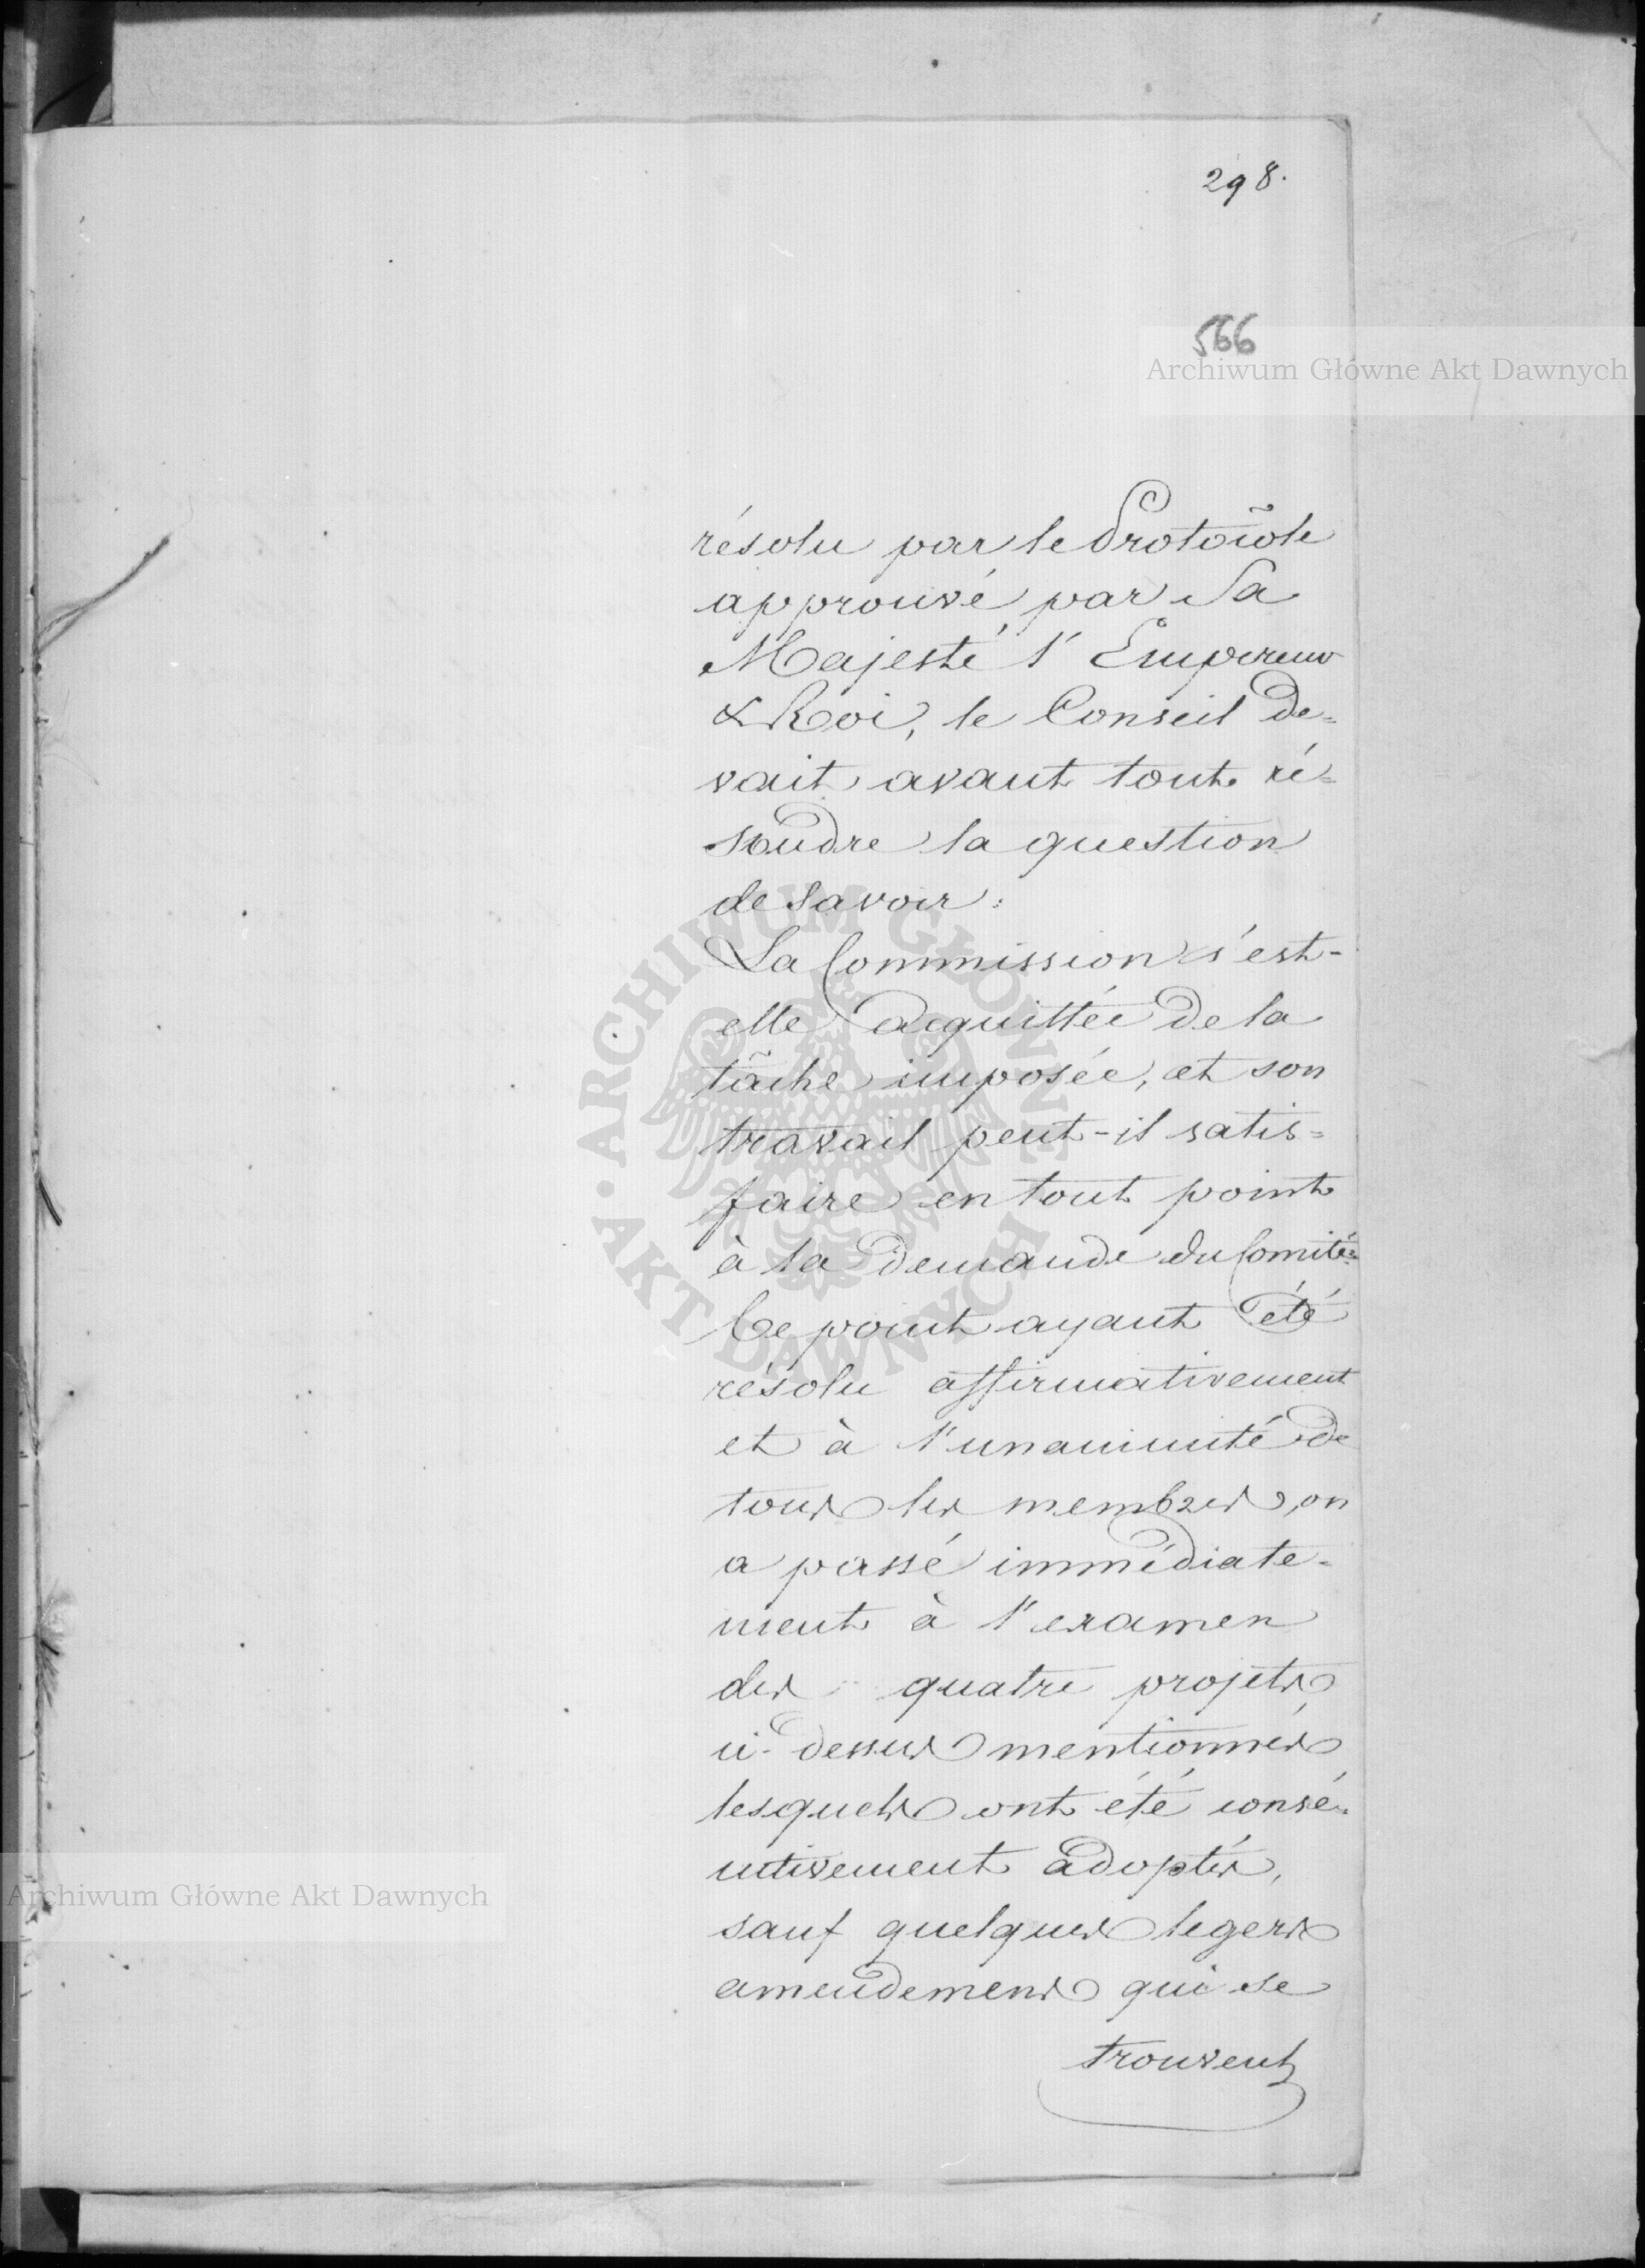 298.
566
Archiwum Główne Akt Dawnych
résolu par le Protocole
approuvé par Sa
Majesté l'Empereur
& Roi, le Conseil de=
vait avant tout ré=
soudre la question
de savoir:
La Commission s'est-
elle acquittée de la
tâche imposée, et son
travail peut-il satis=
faire en tout point
à la demande du Comité.
Ce point ayant été
résolu affirmativement
et à l'unanimité de
tous les membres, on
a passé immédiate-
ment à l'examen
des quatre projets
ci-dessus mentionnés
lesquels ont été consé-
cutivement adoptés,
sauf quelques legers
amendemens qui se
trouvent
Archiwum Główne Akt Dawnych
ARCHIWUM GŁÓWNE AKT DAWNYCH